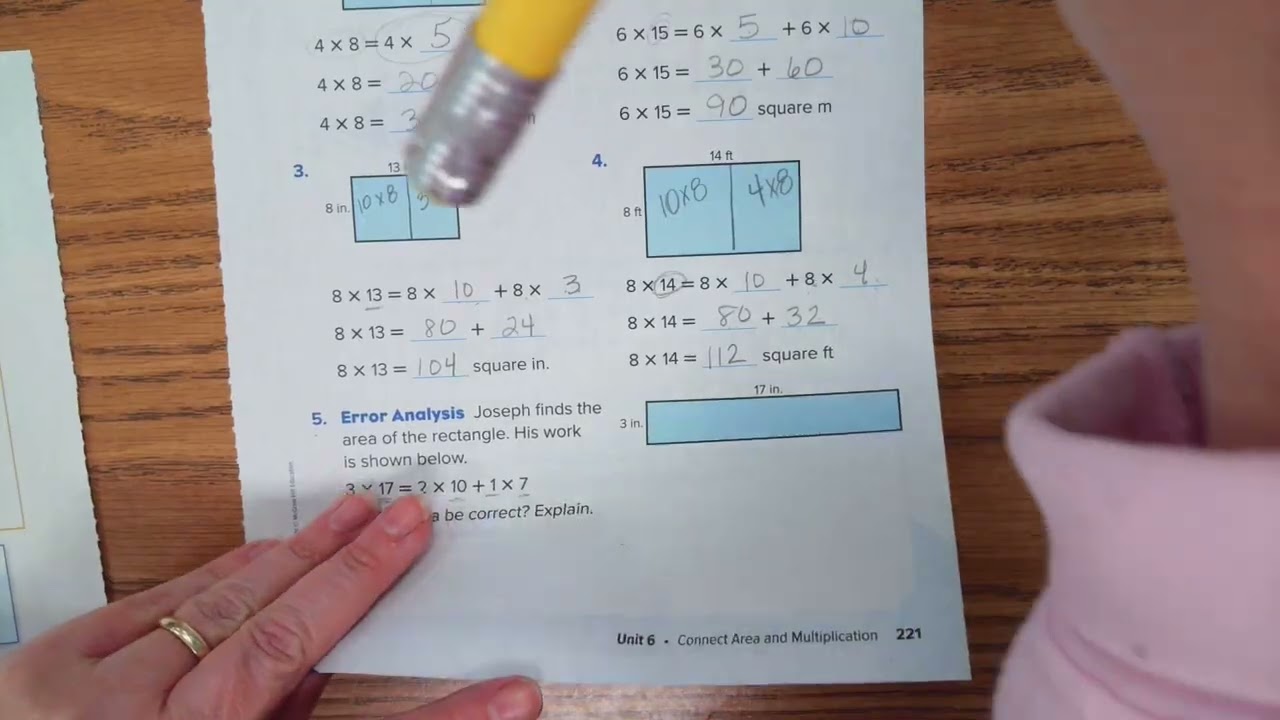 4 × 8 = 4 × 5
4 × 8 = 20
4 × 8 = 3
6 × 15 = 6 × 5 + 6 × 10
6 × 15 = 30 + 60
6 × 15 = 90 square m
3.
13
8 in.
10×8
3
8 × 13 = 8 × 10 + 8 × 3
8 × 13 = 80 + 24
8 × 13 = 104 square in.
4.
14 ft
8 ft
10×8
4×8
8 × 14 = 8 × 10 + 8 × 4
8 × 14 = 80 + 32
8 × 14 = 112 square ft
5. Error Analysis Joseph finds the
area of the rectangle. His work
is shown below.
3 × 17 = 2 × 10 + 1 × 7
a be correct? Explain.
17 in.
3 in.
Unit 6 • Connect Area and Multiplication 221